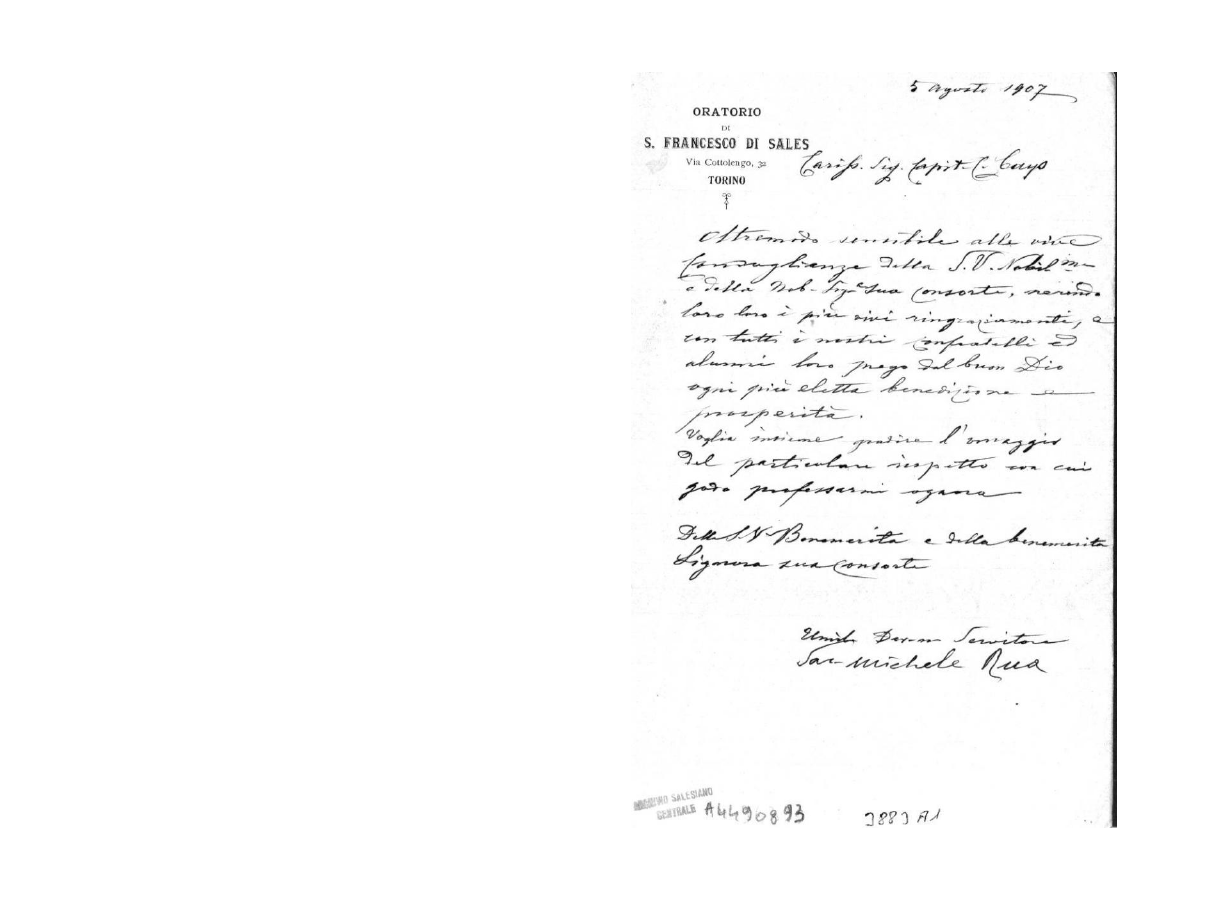 5 Agosto 1907
ORATORIO
DI
S. FRANCESCO DI SALES
Via Cottolengo, 32
TORINO
Cariss. Sig. Capit. C.
Oltremodo sensibile alle vive
Condoglianze della S. V. Nobilma
e della Nob. Sigra Sua Consorte, rendo
loro i più vivi ringraziamenti, e
con tutti i nostri confratelli ed
alunni loro prego dal buon Dio
ogni più eletta benedizione e
prosperità.
Voglia insieme gradire l'omaggio
del particolare rispetto con cui
godo professarmi ognora
Della S. V. Benemerita e della benemerita
Signora sua Consorte
Umil. Dev.m Servitore
Sac. Michele Rua
SALESIANO
CENTRALE A4490893
3883 A1